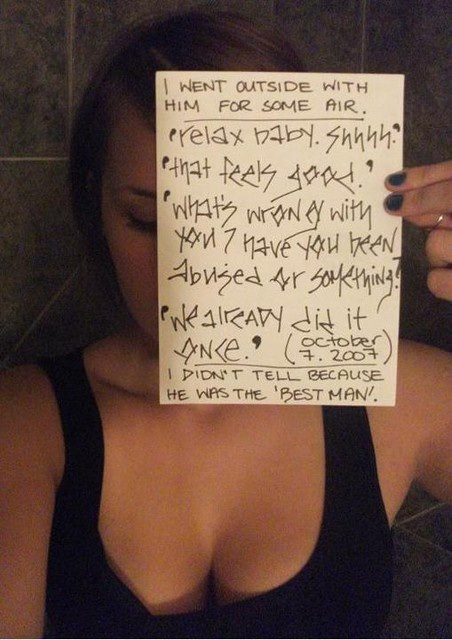 I WENT OUTSIDE WITH
HIM FOR SOME AIR.
'relax baby. Shhhh.'
'that feels good.'
'what's wrong with
you? have you been
abused or something?'
'we already did it
once.' (october
7. 2007)
I DIDN'T TELL BECAUSE
HE WAS THE 'BEST MAN'.